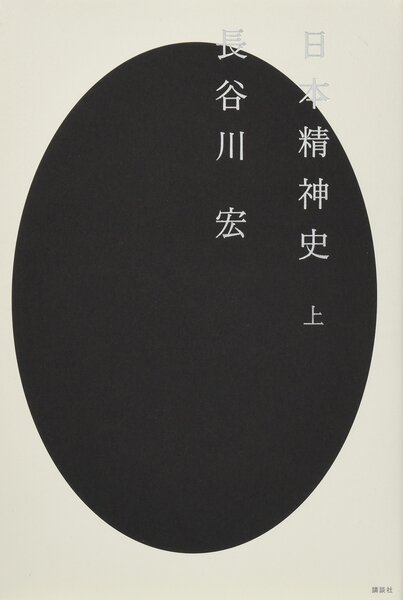 日本精神史 上
長谷川 宏
講談社